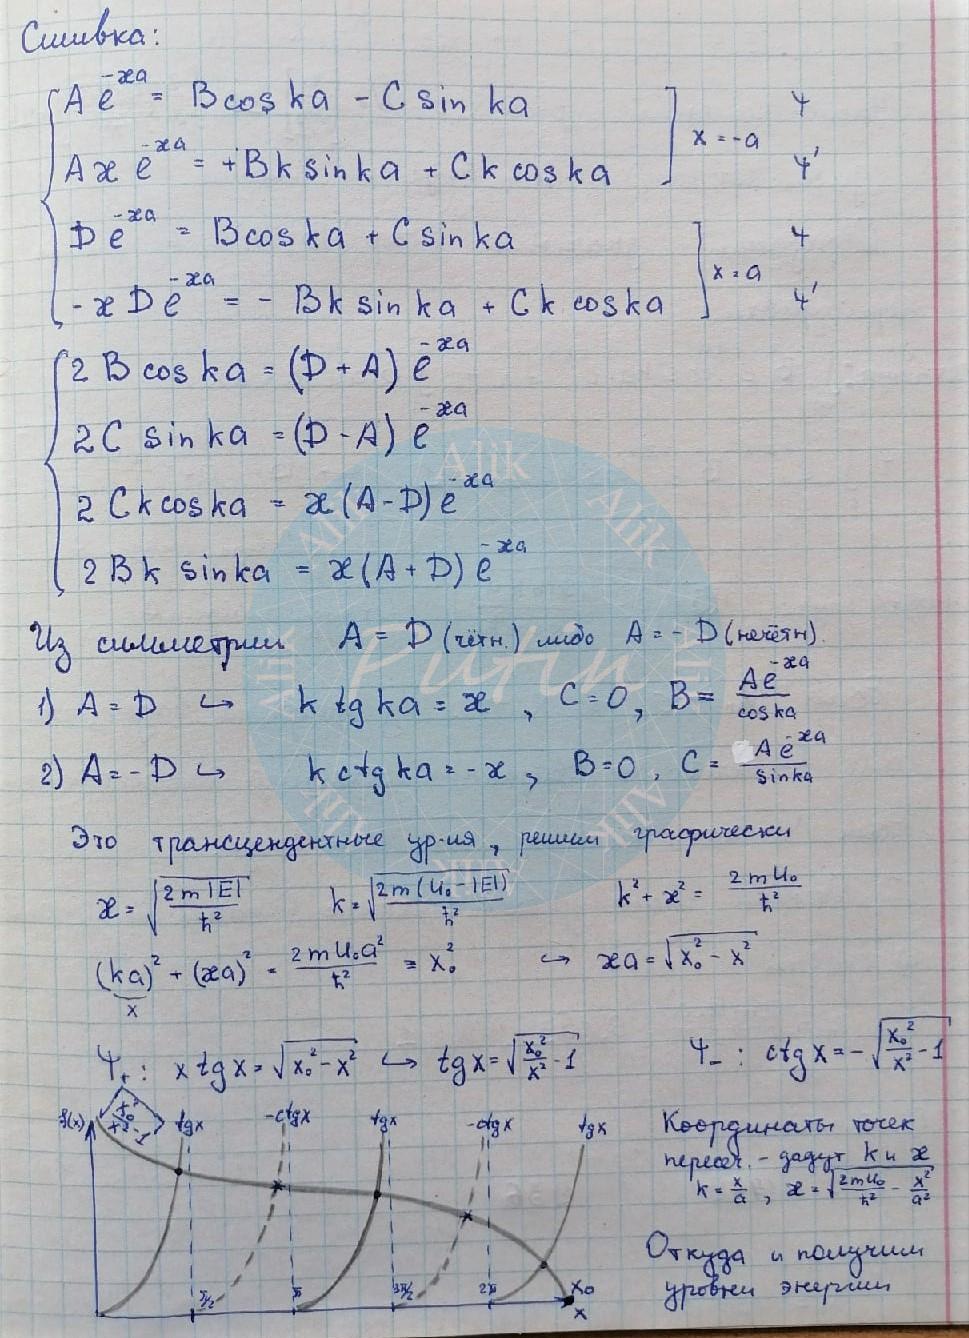 Сшивка:
A e^{-ϰa} = B cos ka - C sin ka ] x = -a ψ
A ϰ e^{-ϰa} = +Bk sin ka + C k cos ka ψ'
D e^{-ϰa} = B cos ka + C sin ka ] x = a ψ
-ϰ D e^{-ϰa} = - Bk sin ka + C k cos ka ψ'
2 B cos ka = (D + A) e^{-ϰa}
2 C sin ka = (D - A) e^{-ϰa}
2 C k cos ka = ϰ (A - D) e^{-ϰa}
2 B k sin ka = ϰ (A + D) e^{-ϰa}
Из симметрии A = D (чётн.) либо A = - D (нечётн).
1) A = D ↪ k tg ka = ϰ , C = 0 , B = \frac{A e^{-ϰa}}{cos ka}
2) A = - D ↪ k ctg ka = - ϰ , B = 0 , C = \frac{A e^{-ϰa}}{sin ka}
Это трансцендентные ур-ия, решим графически
ϰ = \sqrt{\frac{2m|E|}{ħ^2}} k = \sqrt{\frac{2m(U_0 - |E|)}{ħ^2}} k^2 + ϰ^2 = \frac{2mU_0}{ħ^2}
(ka)^2 + (ϰa)^2 = \frac{2mU_0a^2}{ħ^2} = x_0^2 ↪ ϰa = \sqrt{x_0^2 - x^2}
x
ψ_+ : x tg x = \sqrt{x_0^2 - x^2} ↪ tg x = \sqrt{\frac{x_0^2}{x^2} - 1} ψ_- : ctg x = - \sqrt{\frac{x_0^2}{x^2} - 1}
f(x) \sqrt{\frac{x_0^2}{x^2} - 1} tg x -ctg x tg x -ctg x tg x
π/2 π 3π/2 2π x_0
x
Координаты точек
пересеч. - дадут k и ϰ
k = \frac{x}{a} , ϰ = \sqrt{\frac{2mU_0}{ħ^2} - \frac{x^2}{a^2}}
Откуда и получим
уровни энергии
Alik
Alik
Alik
Alik
Putin
Alik
Alik
Alik
Alik